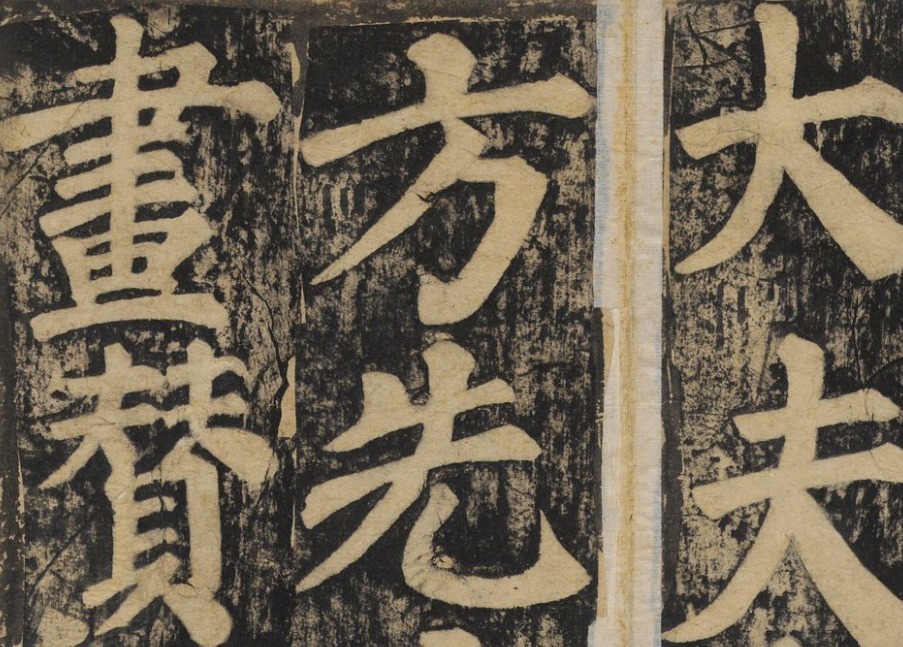 大夫
方先
畫贊